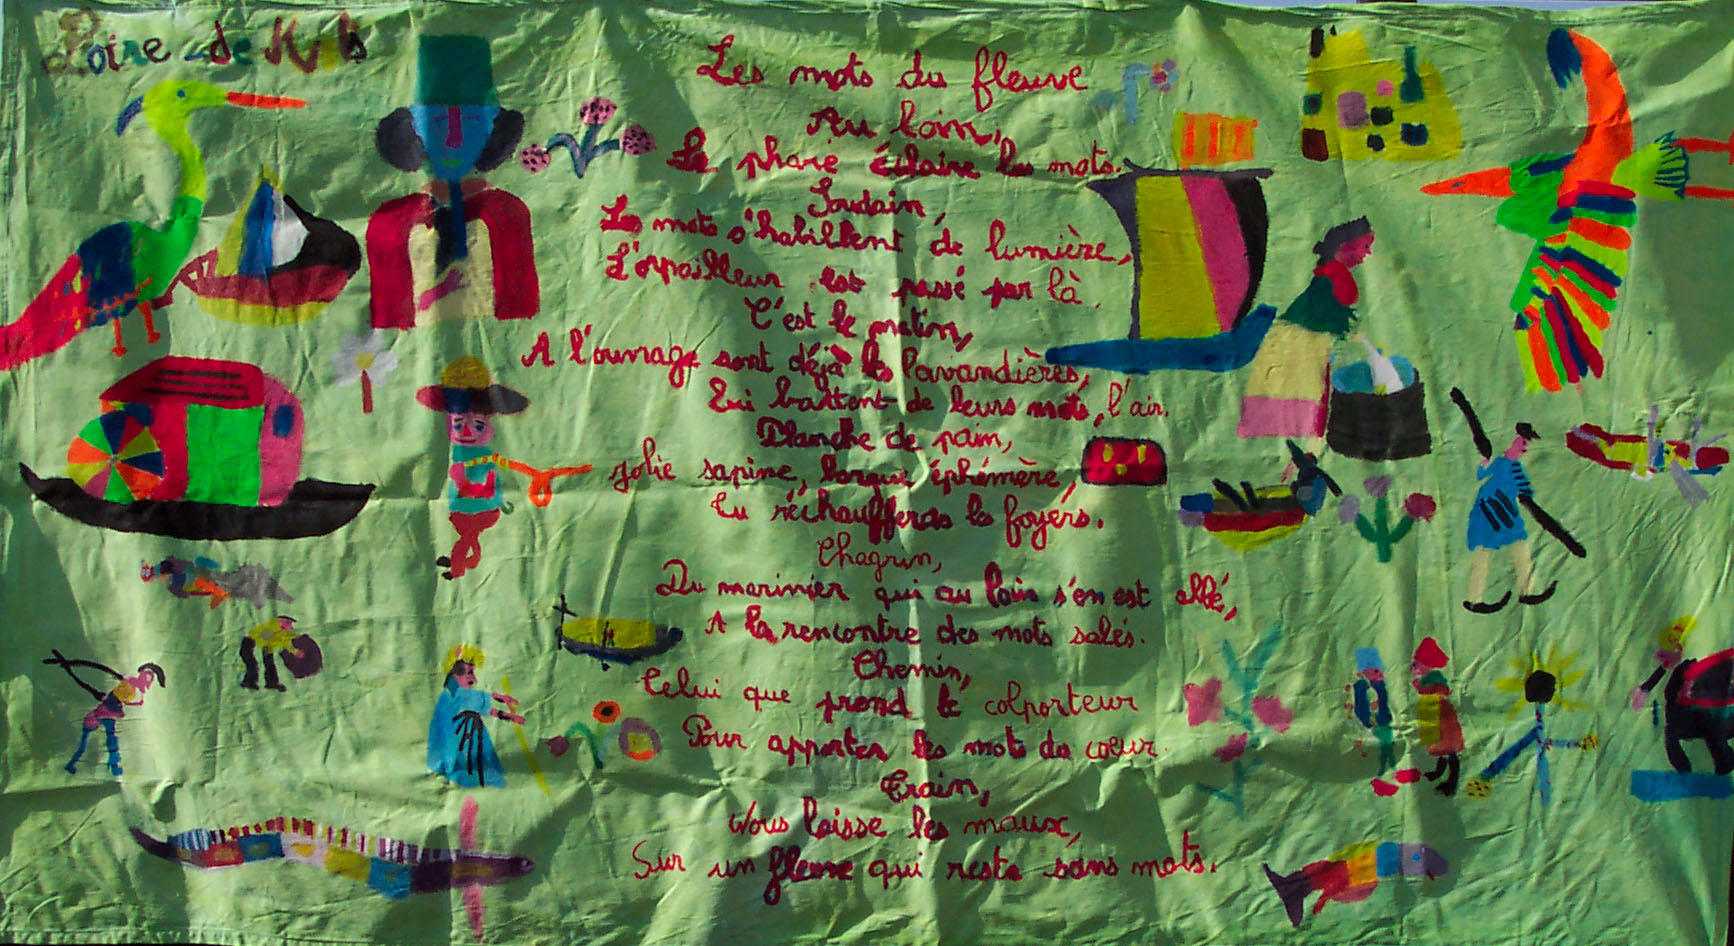 Loire de Mots
Les mots du fleuve
Au loin,
Le phare éclaire les mots.
Soudain,
Les mots s'habillent de lumière,
L'orpailleur est passé par là.
C'est le matin,
A l'ouvrage sont déjà les lavandières,
Qui battent de leurs mots, l'air.
Planche de pain,
Jolie sapine, barque éphémère,
Tu réchaufferas les foyers.
Chagrin,
Du marinier qui au loin s'en est allé,
A la rencontre des mots salés.
Chemin,
Celui que prend le colporteur
Pour apporter les mots du coeur.
Train,
Vous laisse les maux,
Sur un fleuve qui reste sans mots.